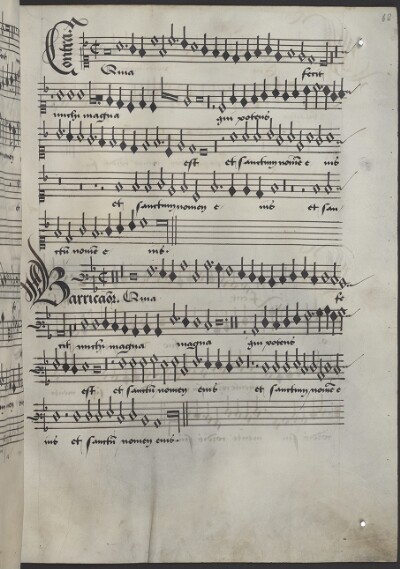 Contra.
Quia fecit
michi magna qui potens
est et sanctum nomē e ius
et sanctum nomen e ius et san
ctū nomē e ius.
Barricaōr. Quia fe
cit michi magna magna qui potens
est et sanctū nomen eius et sanctum nomē e
ius et sanctū nomen eius.